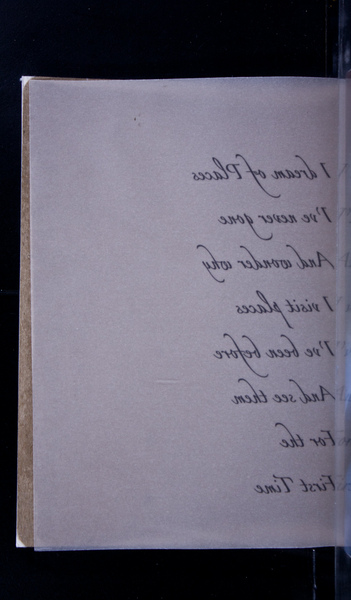 I dream of Places
I've never gone
And wonder why
I visit places
I've been before
And see them
For the
First Time